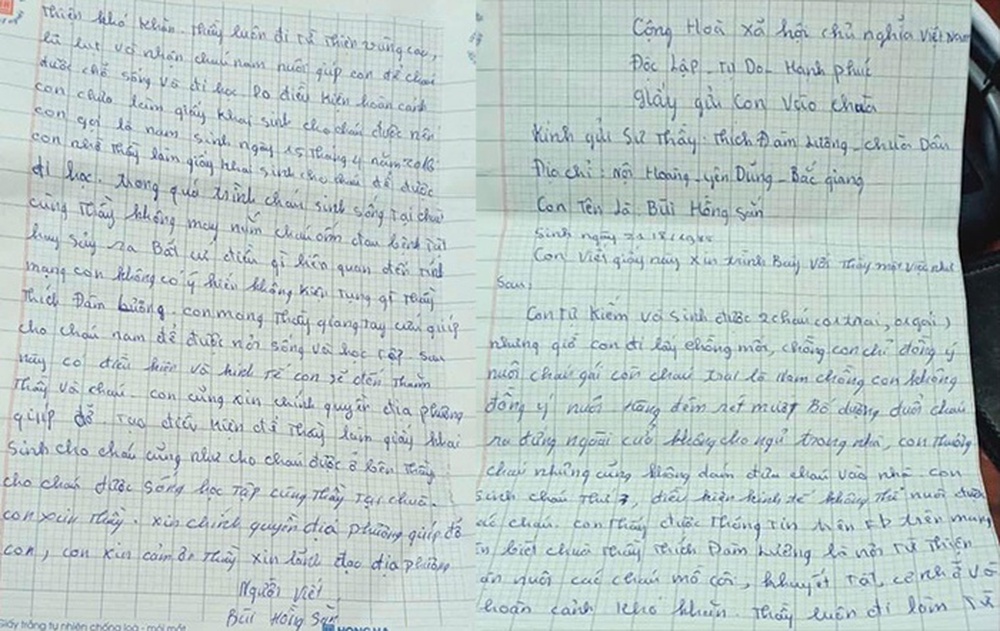 Cộng Hoà xã hội chủ nghĩa Việt Nam
Độc Lập - Tự Do - Hạnh phúc
Giấy gửi con vào chùa
Kính gửi Sư Thầy: Thích Đàm Lương - chùa Dâu
Địa chỉ: Nội Hoàng - yên Dũng - Bắc giang
Con Tên là: Bùi Hồng Sản
Sinh ngày
Con viết giấy này xin trình Bày với Thầy một việc như
Sau:
Con tự kiếm và sinh được 2 cháu (01 trai, 01 gái)
nhưng giờ con đi lấy chồng mới, chồng con chỉ đồng ý
nuôi cháu gái còn cháu trai là Nam chồng con không
đồng ý nuôi Hàng đêm rét mướt Bố dượng đuổi cháu
ra đứng ngoài cửa không cho ngủ trong nhà, con thương
cháu nhưng cũng không dám đưa cháu vào nhà con
sinh cháu thứ 3, điều kiện kinh tế không thể nuôi được
các cháu. con thấy được thông tin trên Fb trên mạng
biết chùa thầy Thích Đàm Lương là nơi Từ Thiện
nuôi các cháu mồ côi, khuyết tật, cơ nhỡ và
hoàn cảnh khó khăn. Thầy luôn đi làm Từ
Thiện khó khăn. Thầy luôn đi từ Thiện vùng cao,
lũ lụt và nhận cháu nam nuôi giúp con để cháu
được chỗ sống và đi học Do điều kiện hoàn cảnh
con chưa làm giấy khai sinh cho cháu được nên
con gọi là nam sinh ngày 15 tháng 4 năm 2016
con nhờ Thầy làm giấy khai sinh cho cháu để được
đi học. trong quá trình cháu sinh sống tại chùa
cùng Thầy không may mắn cháu ốm đau bệnh tật
hay sảy ra Bất cứ điều gì liên quan đến tính
mạng con không có ý kiến không kiện tụng gì Thầy
Thích Đàm Lương. con mong Thầy giang tay cứu giúp
cho cháu nam để được nơi sống và học tập. sau
này có điều kiện và kinh tế con sẽ đến thăm
Thầy và cháu. con cũng xin chính quyền địa phương
giúp đỡ. Tạo điều kiện để Thầy làm giấy khai
sinh cho cháu cũng như cho cháu được ở bên Thầy
cho cháu được sống học tập cùng Thầy tại chùa.
con xin Thầy. xin chính quyền địa phương giúp đỡ
con, con xin cảm ơn Thầy xin lãnh đạo địa phương
Người viết
Bùi Hồng Sản
Giấy trắng tự nhiên chống loá - mỏi mắt
HONG HA